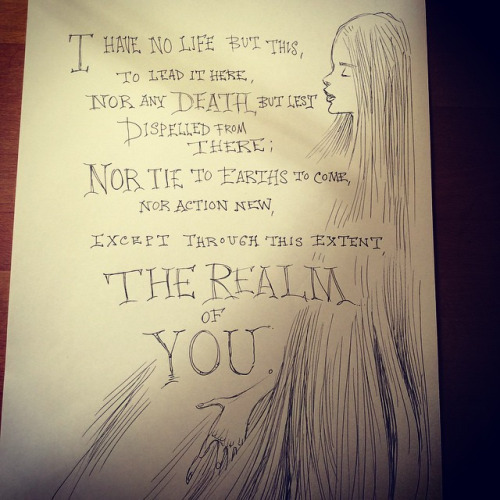 I HAVE NO LIFE BUT THIS,
TO LEAD IT HERE,
NOR ANY DEATH, BUT LEST
DISPELLED FROM
THERE;
NOR TIE TO EARTHS TO COME,
NOR ACTION NEW,
EXCEPT THROUGH THIS EXTENT,
THE REALM
OF
YOU.